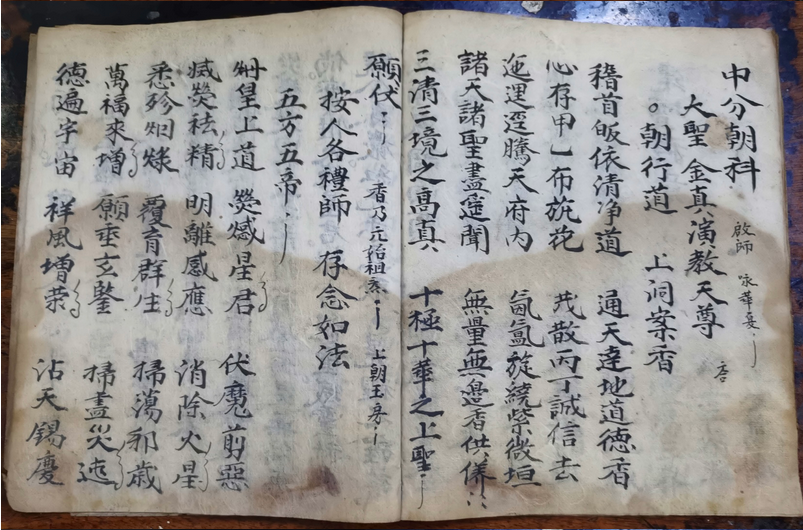 中分朝科
大聖 金真演教天尊
啟師 咏華 
。朝行道 上洞案香
稽首皈依清净道 通天達地道德香
心存甲乙布旂花 散丙丁誠信去
迤运 騰天府内 氤氳旋繞紫微垣
諸天諸聖盡遙聞 無量無邊香供儀
三清三境之高真 十極十華之上聖
願伏 香乃元始祖炁 上朝玉房
按人各禮師 存念如法
五方五帝
皇上道 熒惑星君 伏魔剪惡
熒祛精 明離感應 消除火星
悉殄 覆育群生 掃蕩邪
萬福來增 願垂玄鑒 掃盡災
德遍宇宙 祥風增榮 沾天錫慶